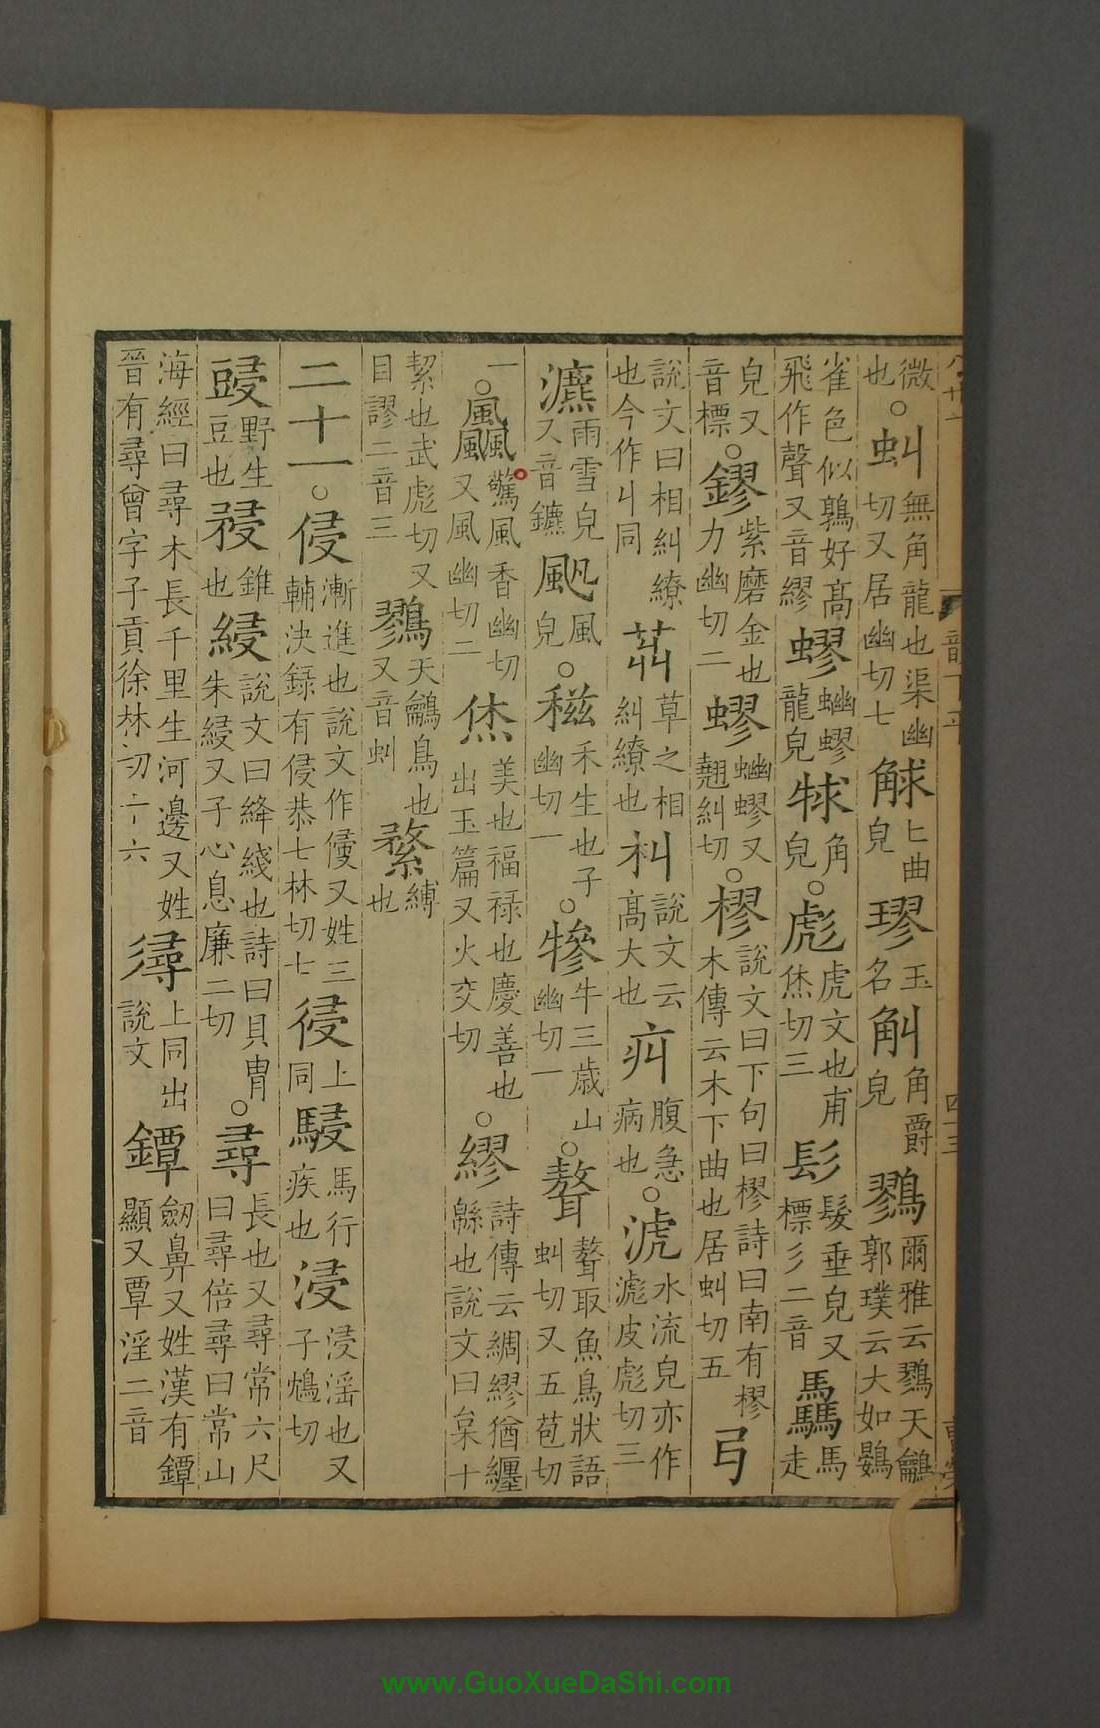 微也○虯無角龍也渠幽切又居幽切七觩匕曲皃璆玉名觓角皃爵鷚爾雅云鷚天鸙郭璞云大如鷃
雀色似鶉好高飛作聲又音繆蟉蟉龍皃觩角皃○彪虎文也甫烋切三髟髮垂皃又標彡二音驫馬走
皃又音標○鏐紫磨金也力幽切二蟉蟉又翹糾切○樛說文曰下句曰樛詩曰南有樛木傳云木下曲也居虯切五丩
說文曰相糾繚也今作丩同茻草之相糾繚也朻說文云高大也疝腹急病也○淲水流皃亦作滮皮彪切三
瀌雨雪皃又音鑣颩風皃○稵禾生也子幽切一○犙牛三歲山幽切一○聱聱取魚鳥狀語虯切又五苞切
一○飍驚風香幽切又風幽切二烋美也福祿也慶善也出玉篇又火交切○繆詩傳云綢繆猶纏緜也說文曰枲十
絜也武彪切又目謬二音三鷚天鸙鳥也又音虯縛也
二十一○侵漸進也說文作侵又姓三輔決録有侵恭七林切七㑴上同駸馬行疾也浸浸淫也又子鴆切
野生豆也錐也綅說文曰絳綫也詩曰貝冑朱綅又子心息廉二切○尋長也又尋常六尺曰尋倍尋曰常山
海經曰尋木長千里生河邊又姓晉有尋曾字子貢徐林切十六㝷上同出說文鐔劒鼻又姓漢有鐔顯又覃淫二音
www.GuoXueDaShi.com